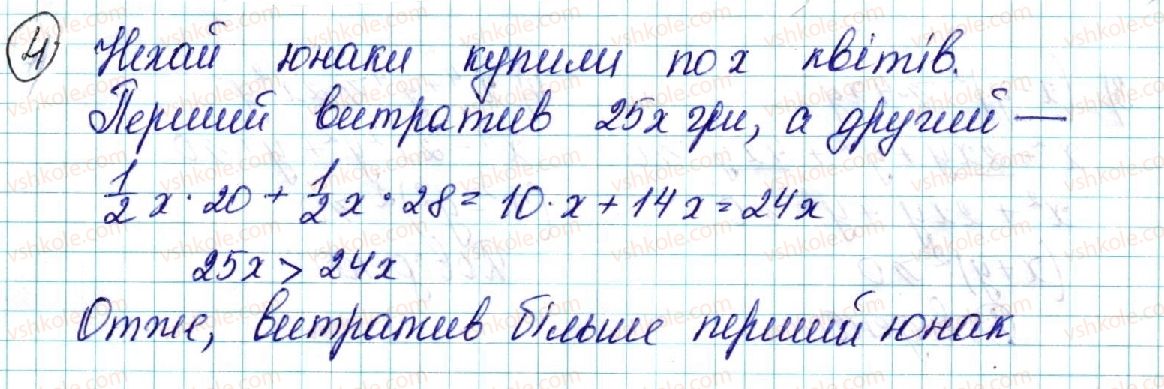 4 Нехай юнаки купили по x квітів.
Перший витратив 25x грн, а другий —
1/2 x · 20 + 1/2 x · 28 = 10 · x + 14x = 24x
25x > 24x
Отже, витратив більше перший юнак.